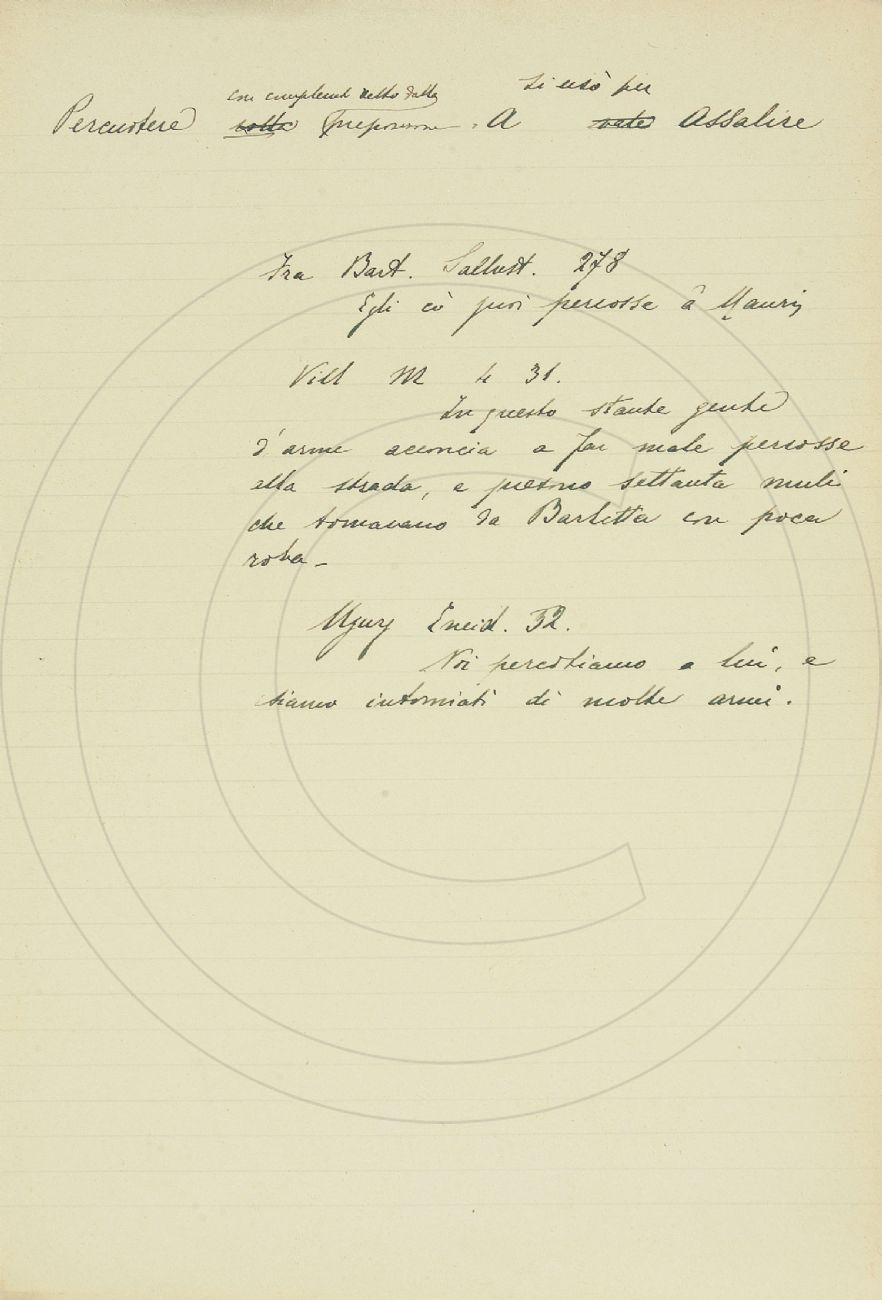 con complement retto dalla si usò per
Percuotere colla preposizione A vale Assalire
Fra Bart. Sallust. 278
Egli co' suoi percosse a' Mauri
Vill M 4 31.
In questo stante gente
d'arme acconcia a far male percosse
alla strada, e presono settanta muli
che tornavano da Barletta con poca
roba –
Ugurg Eneid. 52.
Noi percotiamo a lui, e
siamo intorniati di molte armi.